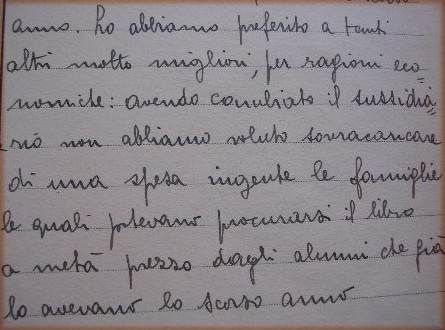 anno. Lo abbiamo preferito a tanti
altri molto migliori, per ragioni eco=
nomiche: avendo cambiato il sussidia=
rio non abbiamo voluto sovracaricare
di una spesa ingente le famiglie
le quali potevano procurarsi il libro
a metà prezzo dagli alunni che già
lo avevano lo scorso anno